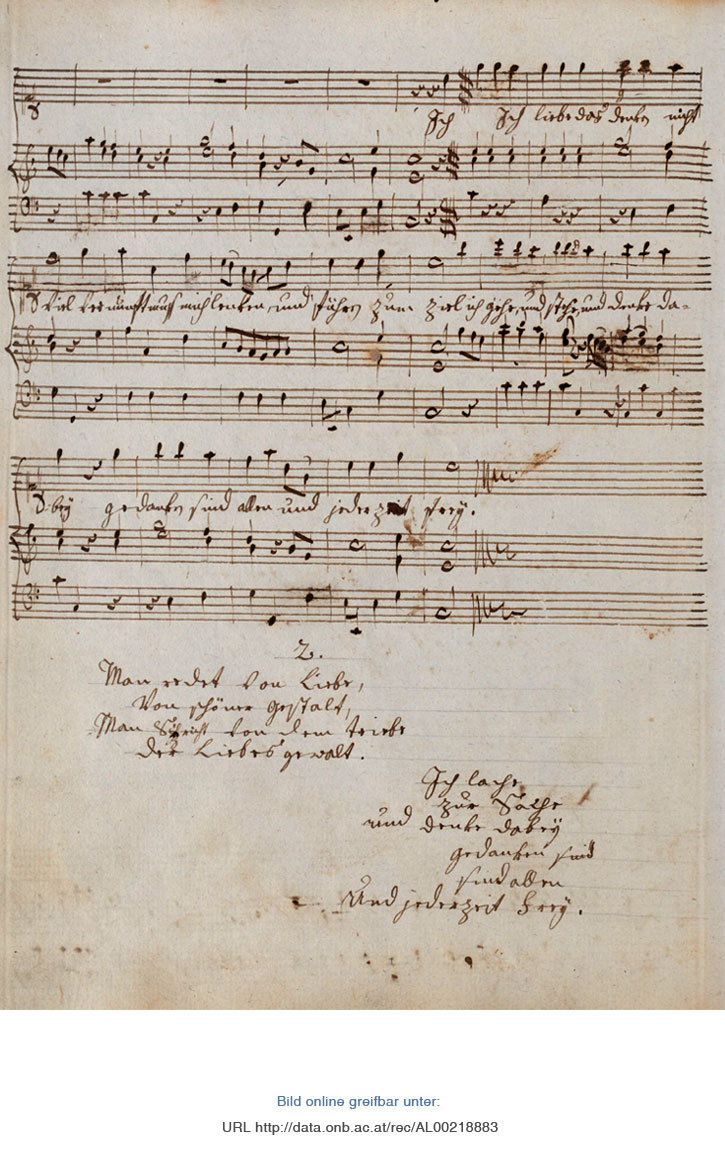 Ich Ich liebe das denken nicht
Viel Vernunft muß mich lenken, und führen zum Ziel ich gehe, und stehe, und denke da-
bey gedanken sind allen und jederzeit frey.
2.
Man redet von Liebe,
Von schöner Gestalt,
Man Spricht von dem triebe
Der Liebes gewalt.
Ich lache
zur Sache
und denke dabey
gedanken sind
sind allen
Und jederzeit frey.
Bild online greifbar unter:
URL http://data.onb.ac.at/rec/AL00218883